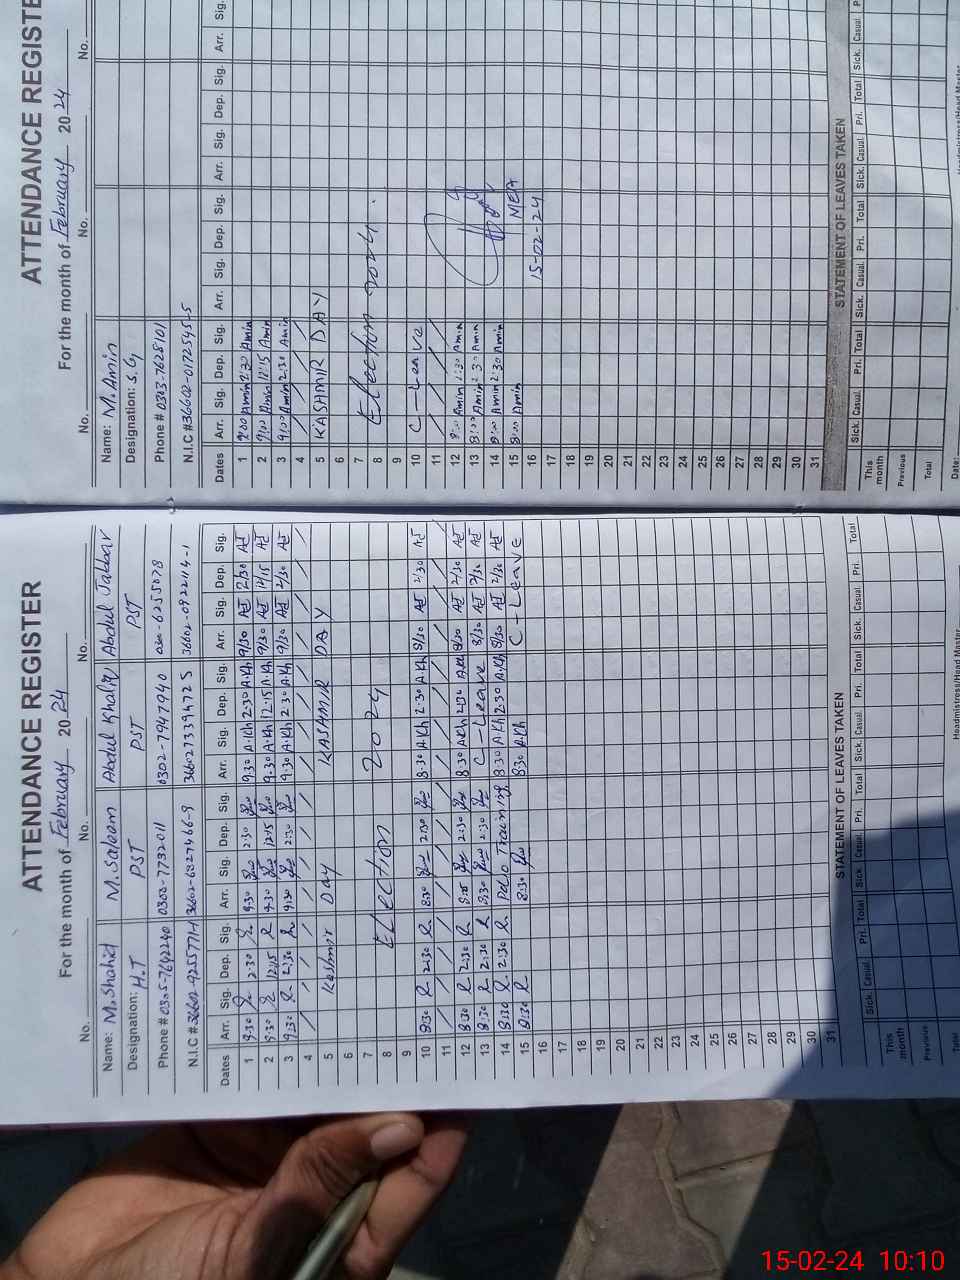 ATTENDANCE REGISTER
For the month of February 2024
No. No. No.
Name: M.Shahid M.Saleem Abdul Khaliq Abdul Jabbar
Designation: H.T PST PST PST
Phone # 0305-7692240 0302-7732011 0302-7947940
N.I.C # 36602-6827466-9 36602-0922114-1
Dates Arr. Sig. Dep. Sig. Arr. Sig. Dep. Sig. Arr. Sig. Dep. Sig. Arr. Sig. Dep. Sig.
1 9.30 2:30 9.30 2:30 9.30 A.Kh 2.30 A.Kh 9/30 AJ 2/30 AJ
2 9.30 12:15 9.30 12:15 9.30 A.Kh 12.15 A.Kh 9/30 AJ 12/15 AJ
3 9:30 2:30 9:30 2:30 9.30 A.Kh 2.30 A.Kh 9/30 AJ 2/30 AJ
4
5 Kashmir Day KASHMIR DAY
6
7
8 Election 2024
9
10 8:30 R 2:30 R 8:30 2:30 8.30 A.Kh 2.30 A.Kh 8/30 AJ 2/30 AJ
11
12 8:30 R 2:30 R 8:15 2:30 8.30 A.Kh 2.30 A.Kh 8/30 AJ 2/30 AJ
13 8:30 R 2:30 R 8:30 2:30 C-Leave 8/30 AJ 2/30 AJ
14 8:30 R 2:30 R Polio Training 8.30 A.Kh 2.30 A.Kh 8/30 AJ 2/30 AJ
15 8:30 R 8:30 8.30 A.Kh C-Leave
16
17
18
19
20
21
22
23
24
25
26
27
28
29
30
31
STATEMENT OF LEAVES TAKEN
Sick. Casual Pri. Total Sick. Casual. Pri. Total Sick. Casual Pri. Total Sick. Casual Pri Total
This month
Previous
Total
Headmistress/Head Master
ATTENDANCE REGISTER
For the month of February 2024
No. No. No.
Name: M.Amin
Designation: S.G
Phone # 0343-7628101
N.I.C #36602-0172545-5
Dates Arr. Sig. Dep. Sig. Arr. Sig. Dep. Sig. Arr. Sig. Dep. Sig. Arr. Sig.
1 9:00 Amin 2:30 Amin
2 9:00 Amin 12:15 Amin
3 9:00 Amin 2:30 Amin
4
5 KASHMIR DAY
6
7
8 Election 2024.
9
10 C-Leave
11
12 8:00 Amin 2:30 Amin
13 8:00 Amin 2:30 Amin
14 8:00 Amin 2:30 Amin
15 8:00 Amin MEA
16 15-02-24
17
18
19
20
21
22
23
24
25
26
27
28
29
30
31
STATEMENT OF LEAVES TAKEN
Sick. Casual. Pri. Total Sick. Casual. Pri. Total Sick. Casual. Pri. Total Sick. Casual
This month
Previous
Total
Date:
Headmistress/Head Master
15-02-24 10:10